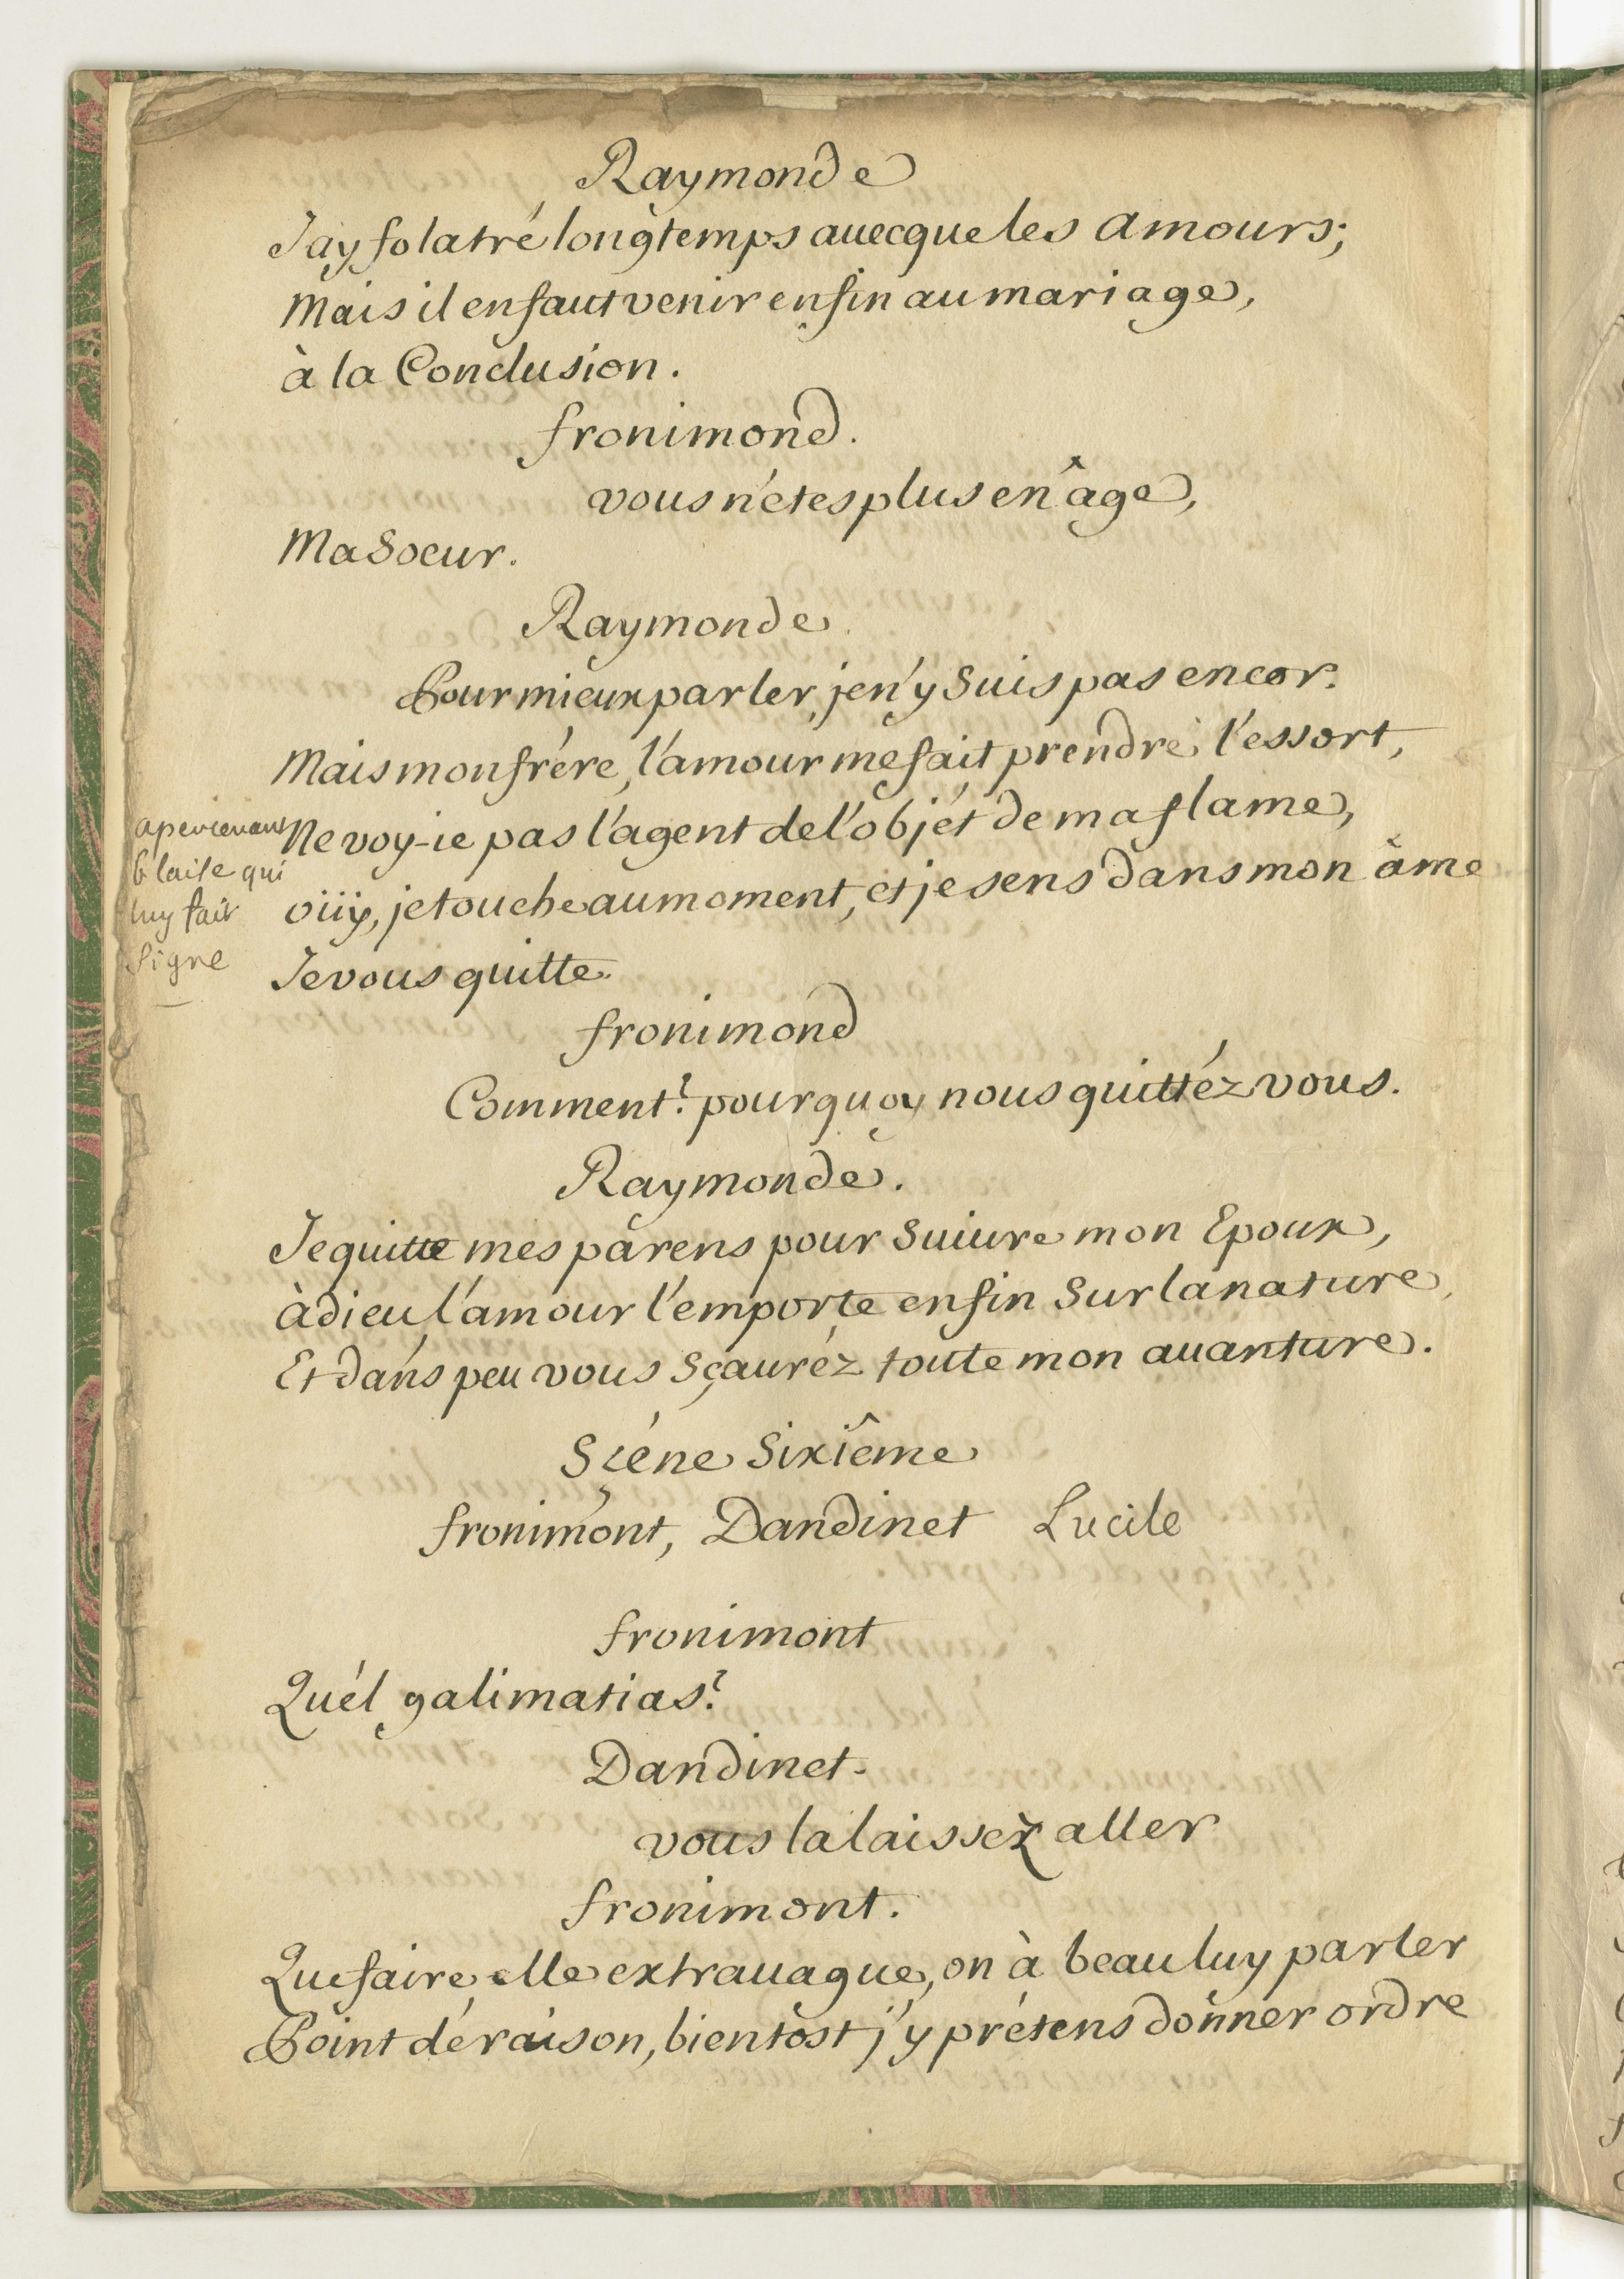 Raymonde
Jay folatré longtemps auecque les amours;
Mais il en faut venir enfin au mariage,
à la Conclusion.
fronimond.
vous n'étes plus en âge,
Ma Soeur.
Raymonde
Pour mieux parler, je n'y Suis pas encor.
Mais mon frére, l'amour me fait prendre l'essort,
Ne voy-ie pas l'agent de l'objét de ma flame,
oüy, je touche au moment, et je sens dans mon âme
Je vous quitte.
apercevant
blaise qui
luy fait
signe
fronimond
Comment? pourquoy nous quittéz vous.
Raymonde.
Je quitte mes parens pour Suiure mon Epoux,
àdieu, l'amour l'emporte enfin Sur la nature,
Et dans peu vous Sçauréz toute mon auanture.
Sçéne Sixiême
fronimont, Dandinet Lucile
fronimont
Quél galimatias?
Dandinet.
vous la laissez aller
fronimont.
Que faire, elle extrauague, on à beau luy parler
Point de raison, bientost j'y prétens donner ordre